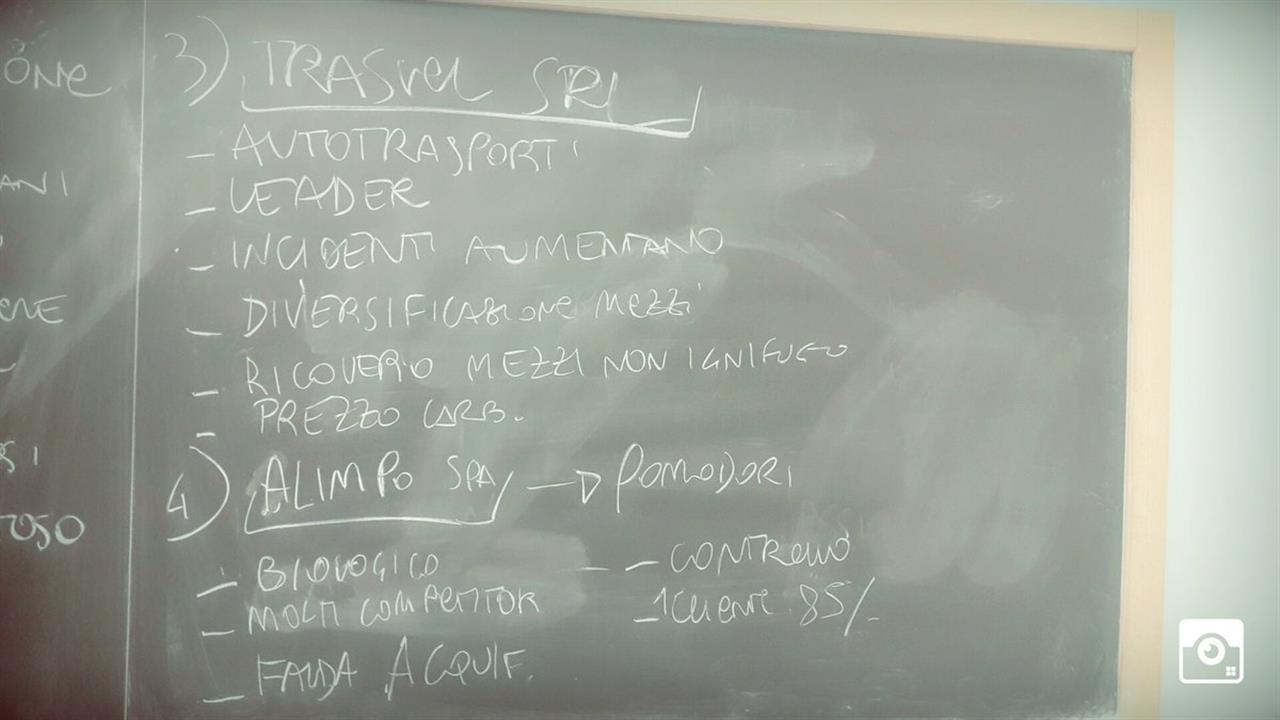 ONE
ANI
ENE
SI
TOSO
3) TRASVEL SRL
- AUTOTRASPORTI
- LEADER
- INCIDENTI AUMENTANO
- DIVERSIFICAZIONE MEZZI
- RICOVERO MEZZI NON IGNIFUGO
- PREZZO CARB.
4) ALIMPO SPA → POMODORI
- BIOLOGICO
- MOLTI COMPETITOR
- FALDA ACQUIF.
- CONTROLLO
- 1 CLIENTE 85%